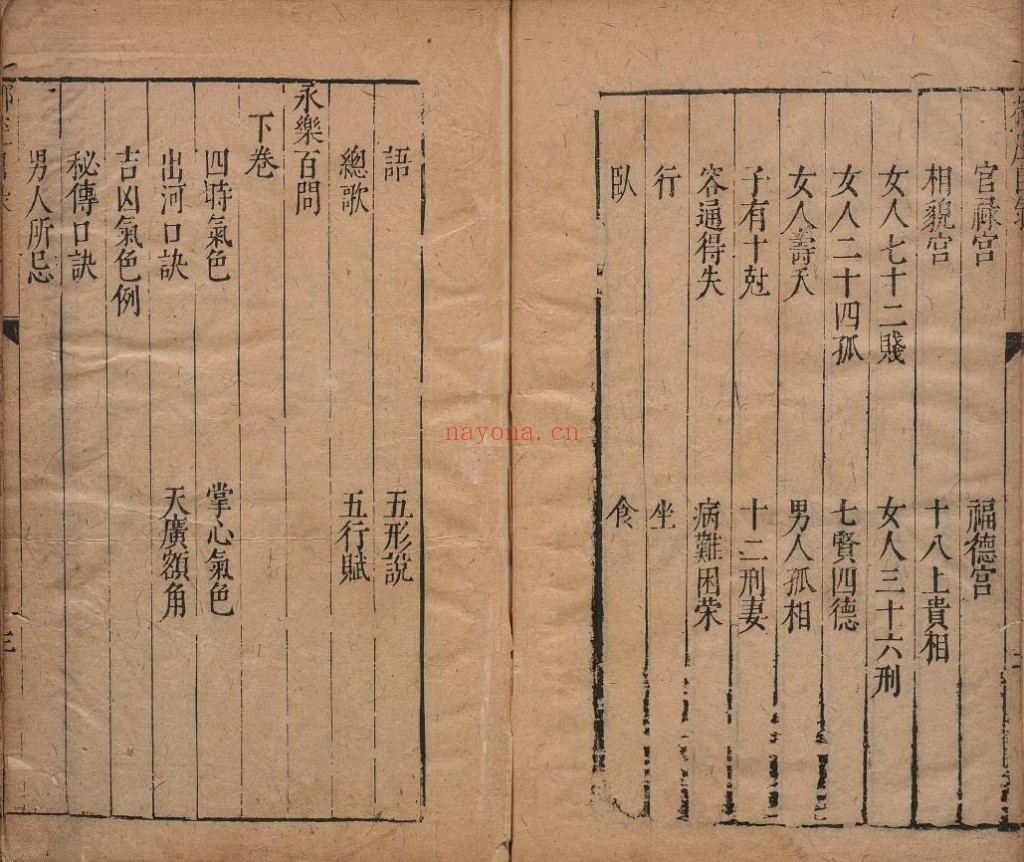 官祿宮 福德宮
相貌宮 十八上貴相
女人七十二賤 女人三十六刑
女人二十四孤 七賢四德
女人壽夭 男人孤相
子有十尅 十二刑妻
容通得失 病難困荣
行 坐
臥 食
語 五形說
總歌 五行賦
永樂百問
下卷
四時氣色 掌心氣色
出河口訣 天廣額角
吉凶氣色例
秘傳口訣
男人所忌
三
nayona.cn